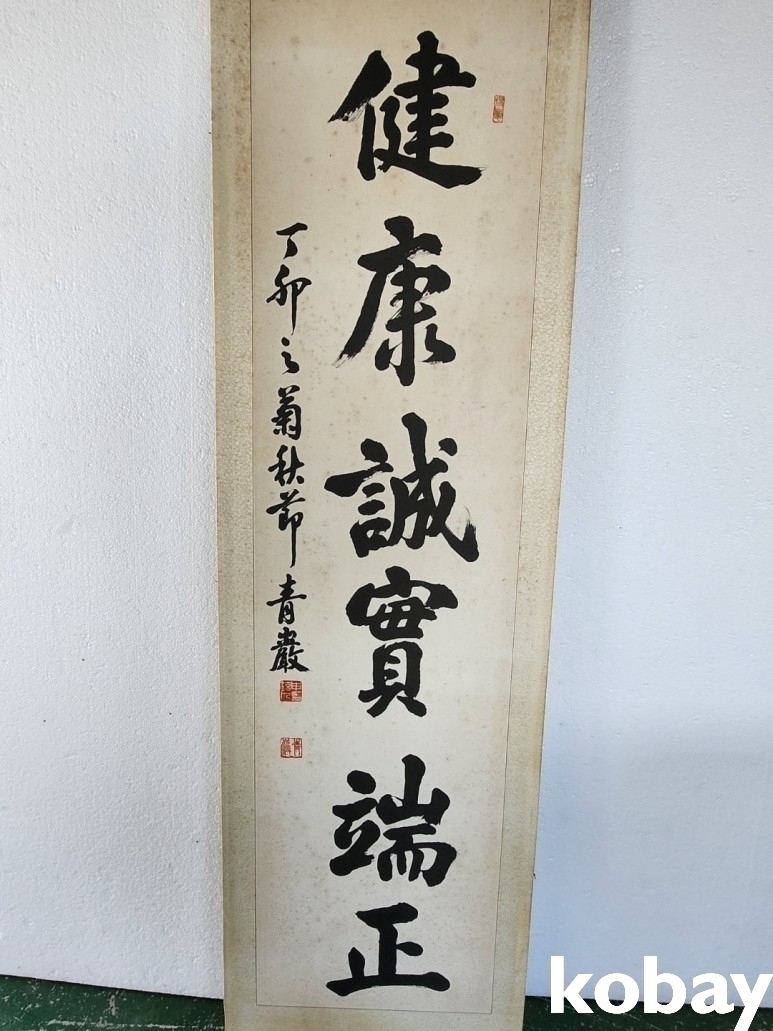 健康誠實端正
丁卯之菊秋節青巖
kobay